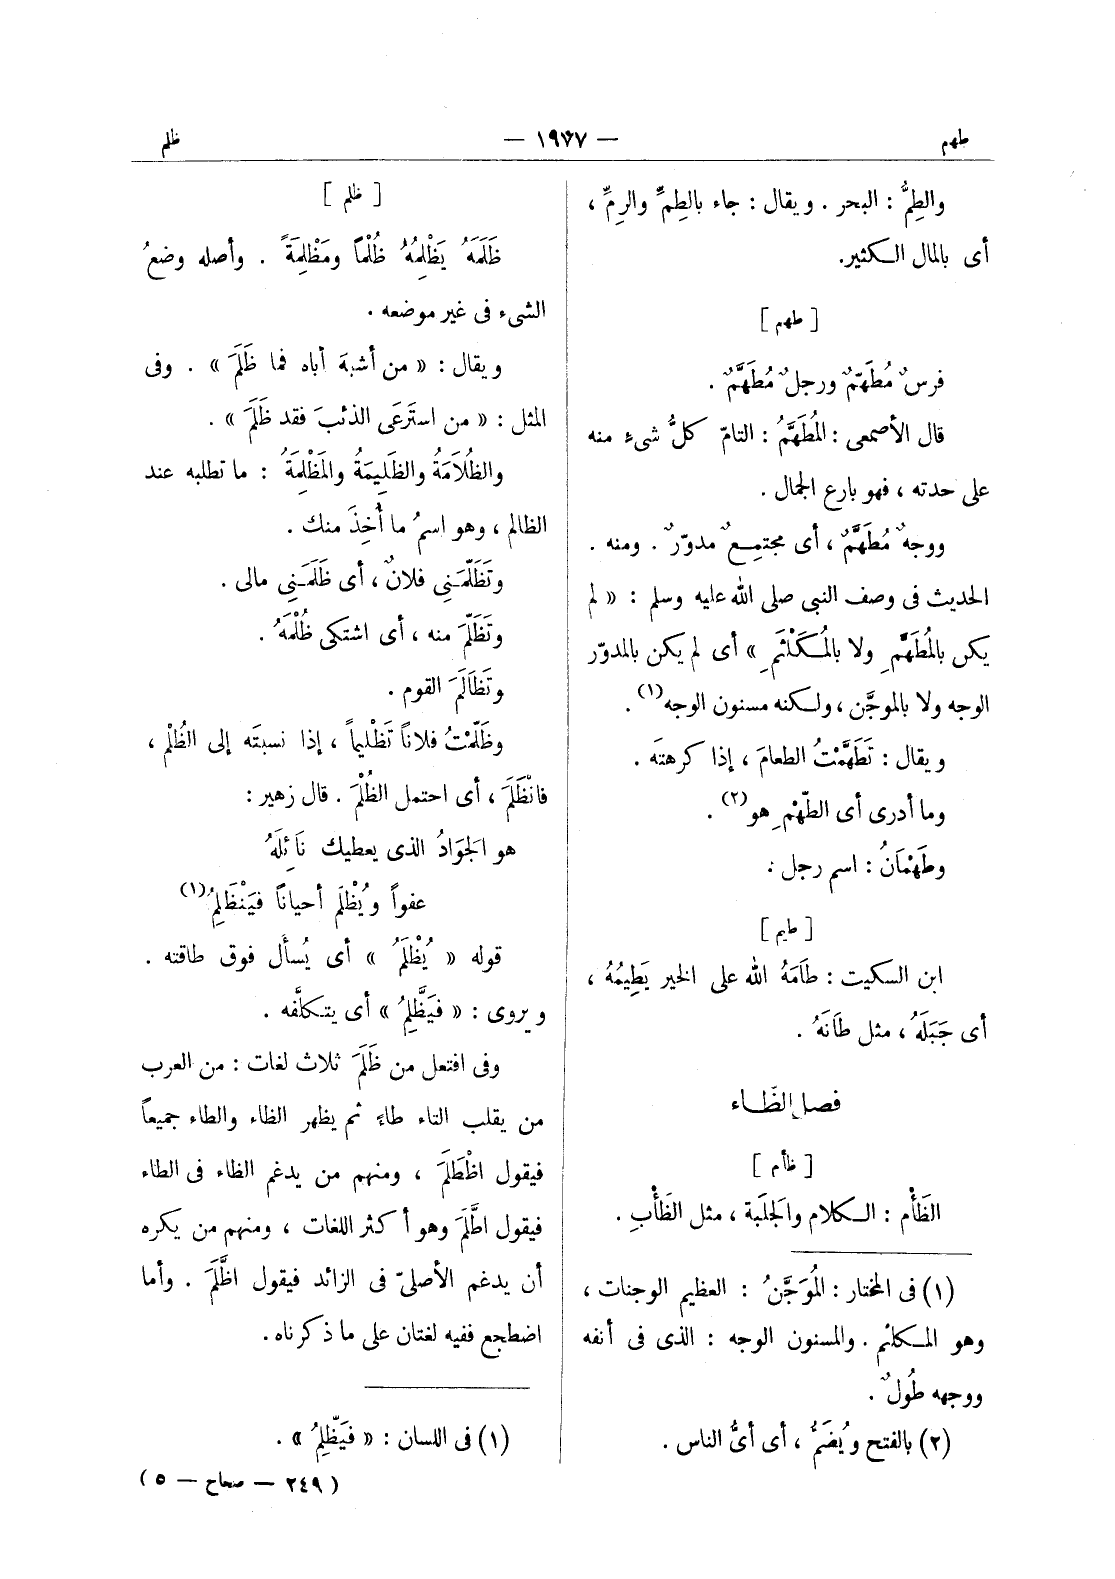 طهم
— ١٩٧٧ —
ظلم
والطِمُّ : البحر . ويقال : جاء بالطِمِّ والرِمِّ ،
أى بالمال الكثير.
[ طهم ]
فرسٌ مُطَهَّمٌ ورجلٌ مُطَهَّمٌ .
قال الأصمعى : المُطَهَّمُ : التامّ كلُّ شىءٍ منه
على حدته ، فهو بارع الجمال .
ووجهٌ مُطَهَّمٌ ، أى مجتمِعٌ مدوّرٌ . ومنه .
الحديث فى وصف النبى صلى الله عليه وسلم : « لم
يكن بالمُطَهَّمِ ولا بالمُكَلْثَمِ » أى لم يكن بالمدوّر
الوجه ولا بالموجَّن ، ولكنه مسنون الوجه(١) .
ويقال : تَطَهَّمْتُ الطعامَ ، إذا كرهتَه .
وما أدرى أى الطّهْمِ هو(٢) .
وطَهْمَانُ : اسم رجل :
[ طيم ]
ابن السكيت : طَامَهُ الله على الخير يَطِيمُهُ ،
أى جَبَلَهُ ، مثل طَانَهُ .
فصل الظَّاء
[ ظأم ]
الظَأْم : الكلام والجلَبة ، مثل الظَأْبِ .
(١) فى المختار : المُوَجَّنُ : العظيم الوجنات ،
وهو المكلثم . والمسنون الوجه : الذى فى أنفه
ووجهه طُولٌ .
(٢) بالفتح ويُضَمُّ ، أى أىُّ الناس .
[ ظلم ]
ظَلَمَهُ يَظْلِمُهُ ظُلْماً ومَظْلِمَةً . وأصله وضعُ
الشىء فى غير موضعه .
ويقال : « من أشبهَ أباه فما ظَلَمَ » . وفى
المثل : « من استَرعَى الذئبَ فقد ظَلَمَ » .
والظُلَامَةُ والظَلِيمَةُ والمَظْلِمَةُ : ما تطلبه عند
الظالم ، وهو اسمُ ما أُخِذَ منك .
وتَظَلَّمَنِى فلانٌ ، أى ظَلَمَنِى مالى .
وتَظَلَّمَ منه ، أى اشتكى ظُلْمَهُ .
وتَظَالَمَ القوم .
وظَلَّمْتُ فلاناً تَظْلِيماً ، إذا نسبتَه إلى الظُلْم ،
فانْظَلَمَ ، أى احتمل الظُلْمَ . قال زهير :
هو الجَوَادُ الذى يعطيك نَائِلَهُ
عفواً ويُظْلَم أحياناً فيَنْظَلِمُ(١)
قوله « يُظْلَمُ » أى يُسأل فوق طاقته .
ويروى : « فيَظَّلِمُ » أى يتكلَّفه .
وفى افتعل من ظَلَمَ ثلاث لغات : من العرب
من يقلب التاء طاءً ثم يظهر الظاء والطاء جميعاً
فيقول اظْطَلَمَ ، ومنهم من يدغم الظاء فى الطاء
فيقول اطَّلَمَ وهو أكثر اللغات ، ومنهم من يكره
أن يدغم الأصلىّ فى الزائد فيقول اظَّلَمَ . وأما
اضطجع ففيه لغتان على ما ذكرناه.
(١) فى اللسان : « فيَظّلِمُ » .
( ٢٤٩ — صحاح — ٥ )